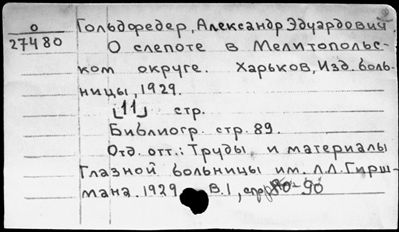 О
27480
Гольдфедер, Александр Эдуардович.
О слепоте в Мелитопольс-
ком округе. Харьков, Изд. боль-
ницы, 1929.
[11] стр.
Библиогр. стр. 89.
Отд. отт.: Труды и материалы
Глазной больницы им. Л.Л. Гирш-
мана. 1929 В.1, стр. 80-90